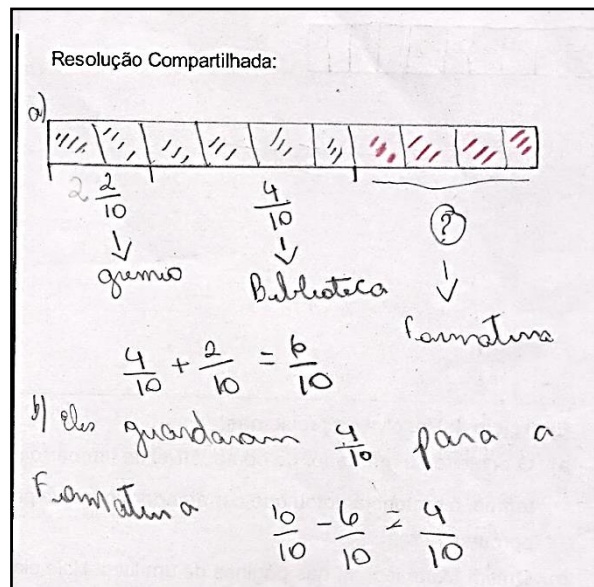 Resolução Compartilhada:
a)
2 2/10 4/10 ?
grêmio Biblioteca Formatura
4/10 + 2/10 = 6/10
b) eles guardaram 4/10 para a
Formatura
10/10 - 6/10 = 4/10